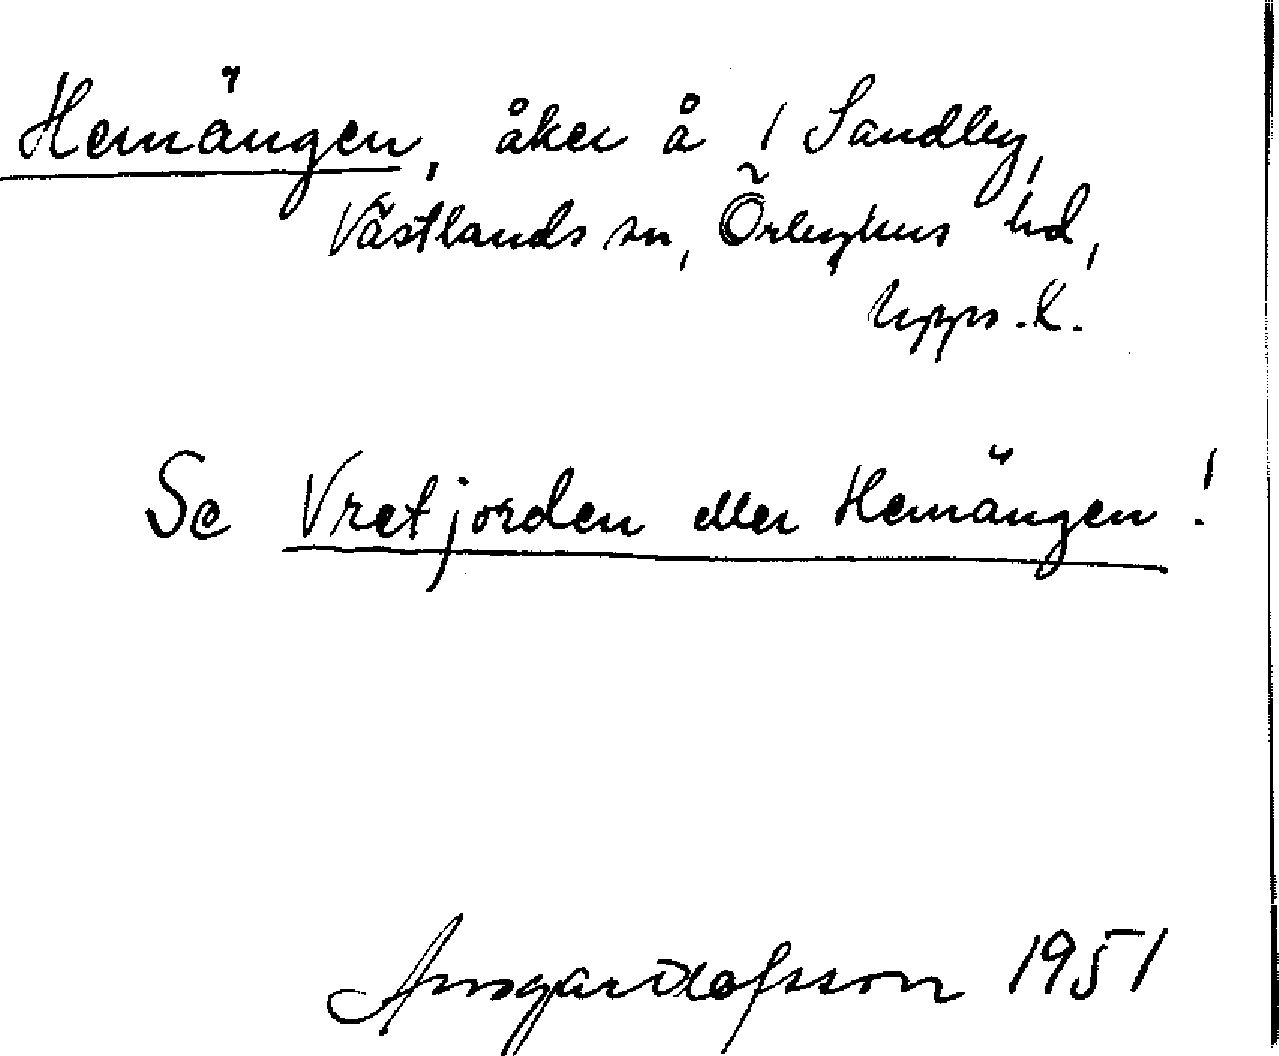 Hemängen, åker å 1 Sandby,
Västlands sn, Örbyhus hd,
Upps. l.
Se Vretjorden eller Hemängen!
Ansgar Olofsson 1951